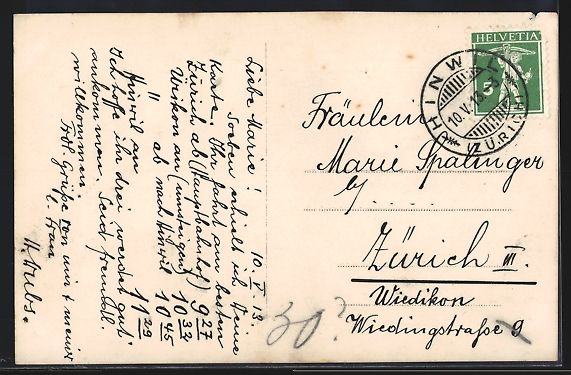 10. V. 13.
Liebe Marie!
Soeben erhielt ich Deine
Karte. Ihr fahrt am besten
Zürich ab (Hauptbahnhof) 9 27
Uerikon an (umsteigen) 10 32
" ab nach Hinwil 10 45
Hinwil an 11 29
Ich hoffe ihr drei werdet gut
ankommen. Seid freundl.
willkommen
Frdl. Grüße von mir & meiner
l. Frau
HELVETIA
5
HINWIL
10.V.13
(ZÜRICH)
Fräulein
Marie Spalinger
Zürich III.
Wiedikon
Wiedingstraße 9
30?